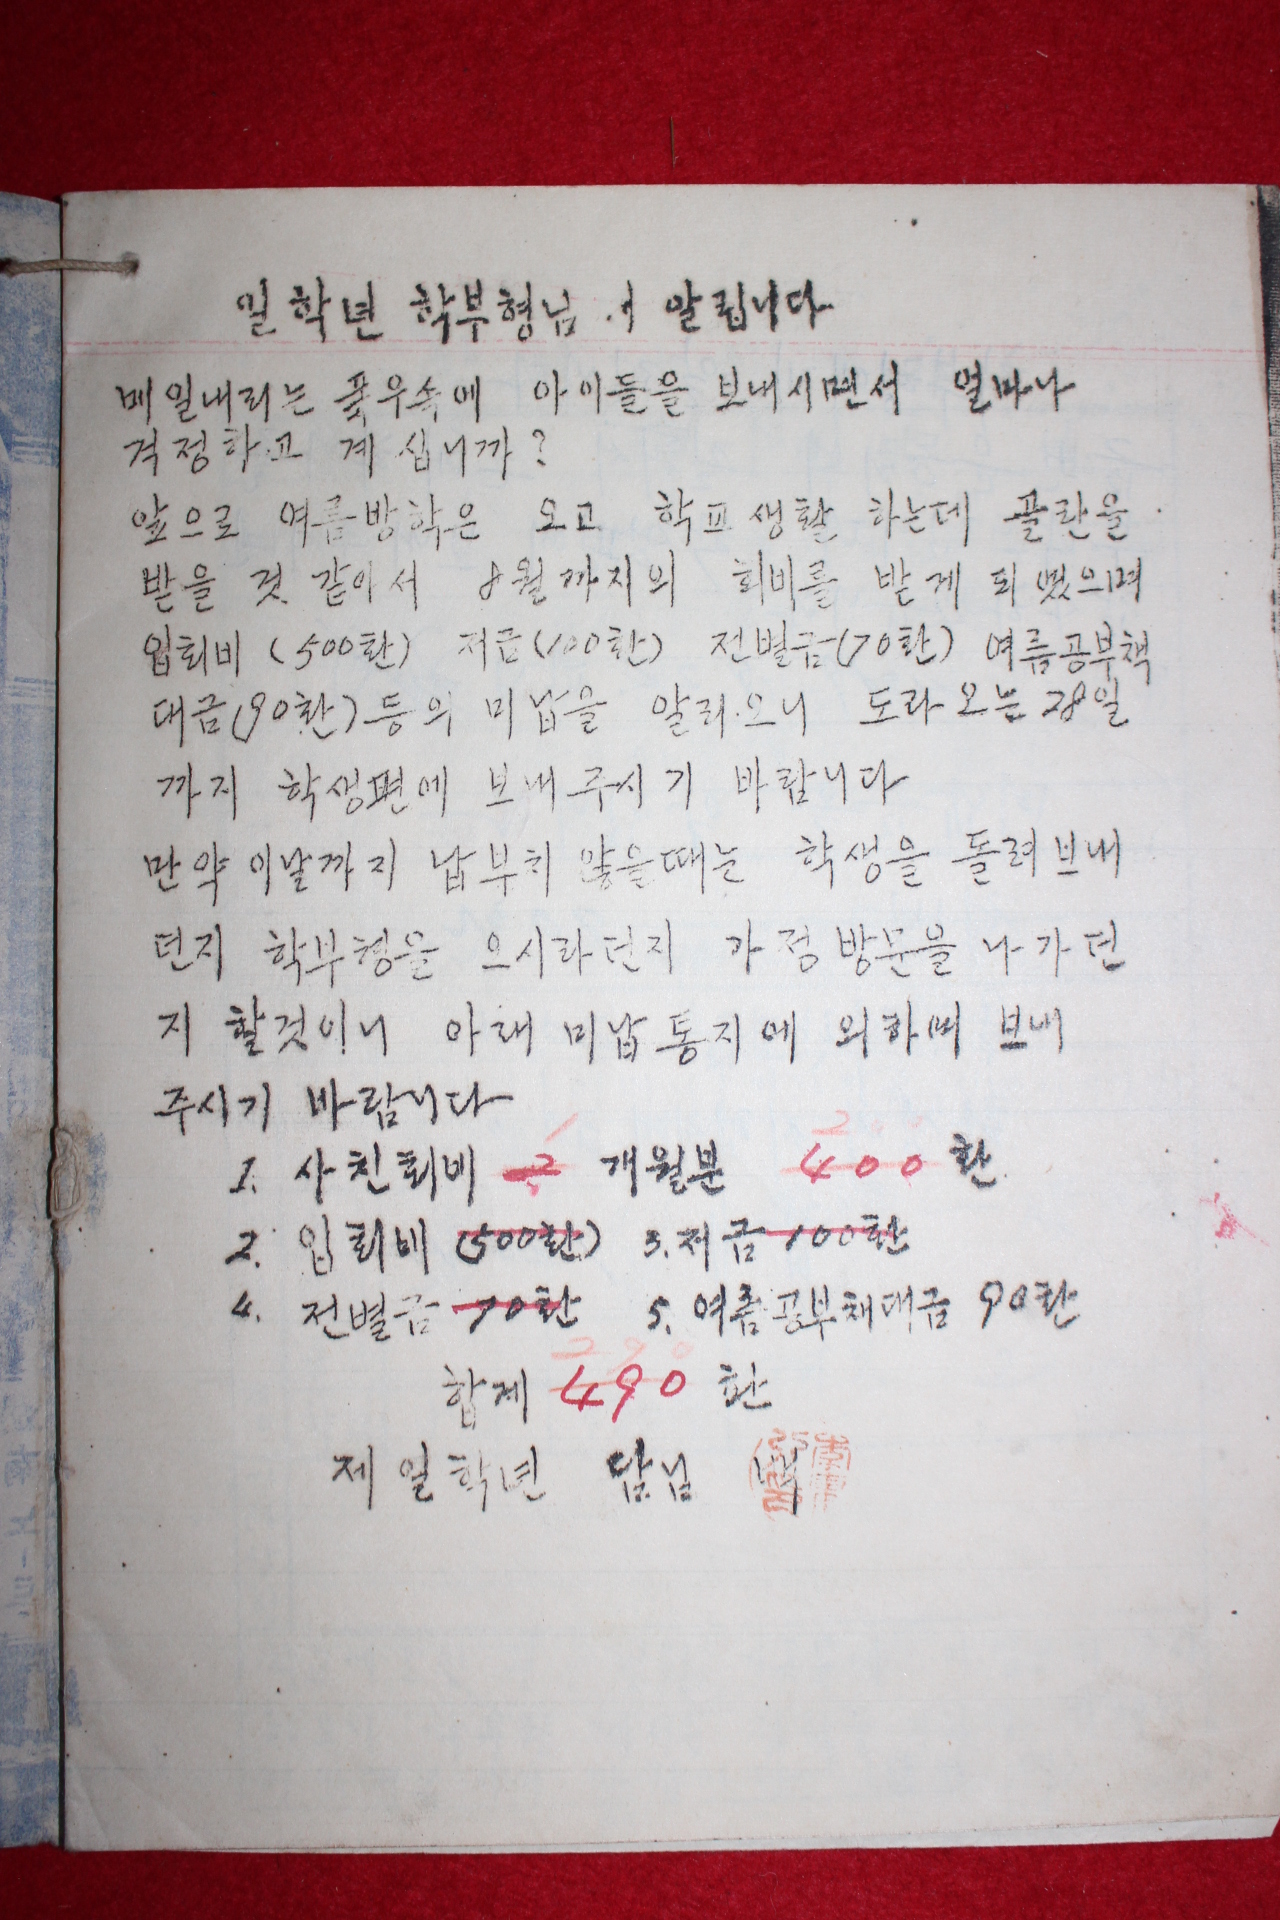 일학년 학부형님 알립니다
메일내리는 폭우속에 아이들을 보내시면서 얼마나
걱정하고 계십니까?
앞으로 여름방학은 오고 학교생활 하는데 곤란을
받을 것 같아서 8월까지의 회비를 받게 되였으며
입회비 (500환) 저금(100환) 전별금(70환) 여름공부책
대금(90환)등의 미납을 알리오니 도라오는 28일
까지 학생편에 보내주시기 바람니다
만약 이날까지 납부치 않을때는 학생을 돌려보내
던지 학부형을 오시라던지 가정방문을 나가던
지 할것이니 아래 미납통지에 의하여 보내
주시기 바람니다
1
200
1. 사친회비 2 개월분 400 환
2. 입회비 (500환) 3. 저금 100환
4. 전별금 70환 5. 여름공부채대금 90환
290
합계 490 환
제일학년 담님